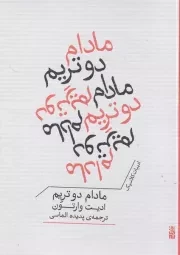 مادام
دوتریم
مادام
دوتریم
مادام
دوتریم
مادام
ادبیات کلاسیک
مادام دوتریم
ادیت وارتون
ترجمه‌ی پدیده الماسی